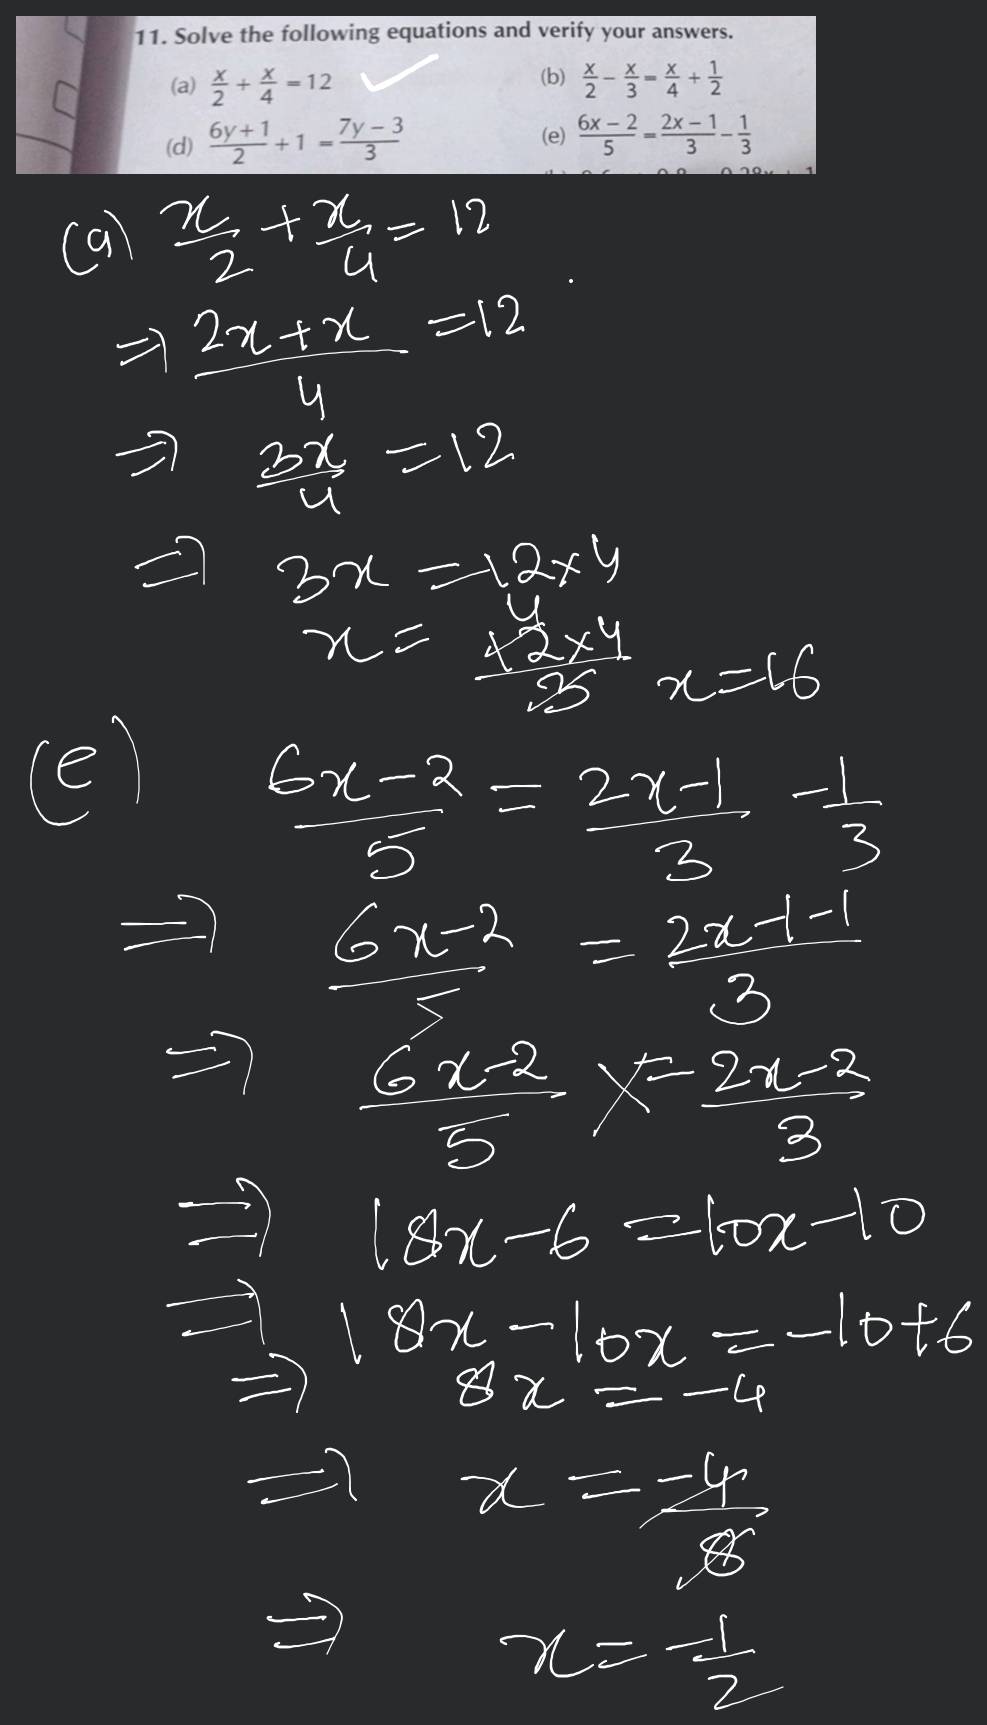 11. Solve the following equations and verify your answers.
(a) x/2 + x/4 = 12 (b) x/2 - x/3 = x/4 + 1/2
(d) (6y + 1)/2 + 1 = (7y - 3)/3 (e) (6x - 2)/5 = (2x - 1)/3 - 1/3
(a) x/2 + x/4 = 12
⇒ (2x + x)/4 = 12
⇒ 3x/4 = 12
⇒ 3x = 12 × 4
x = (12 × 4)/3 x = 16
(e) (6x - 2)/5 = (2x - 1)/3 - 1/3
⇒ (6x - 2)/5 = (2x - 1 - 1)/3
⇒ (6x - 2)/5 = (2x - 2)/3
⇒ 18x - 6 = 10x - 10
⇒ 18x - 10x = -10 + 6
⇒ 8x = -4
⇒ x = -4/8
⇒ x = -1/2